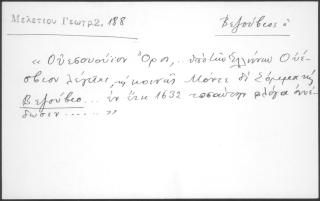 Μελετίου Γεωγρ2, 188
Βεζούβιος ὁ
« Οὐεσούουϊον Ὄρος, .. ὑπὸ τῶν Ἑλλήνων Οὐέσ-
βιον λέγεται, κοινῶς Μόντε δὲ Σόμμα
Βεζούβιο... ἐν ἔτει 1632 τοσαύτην φλόγα ἀνέ-
δωσεν ..... »